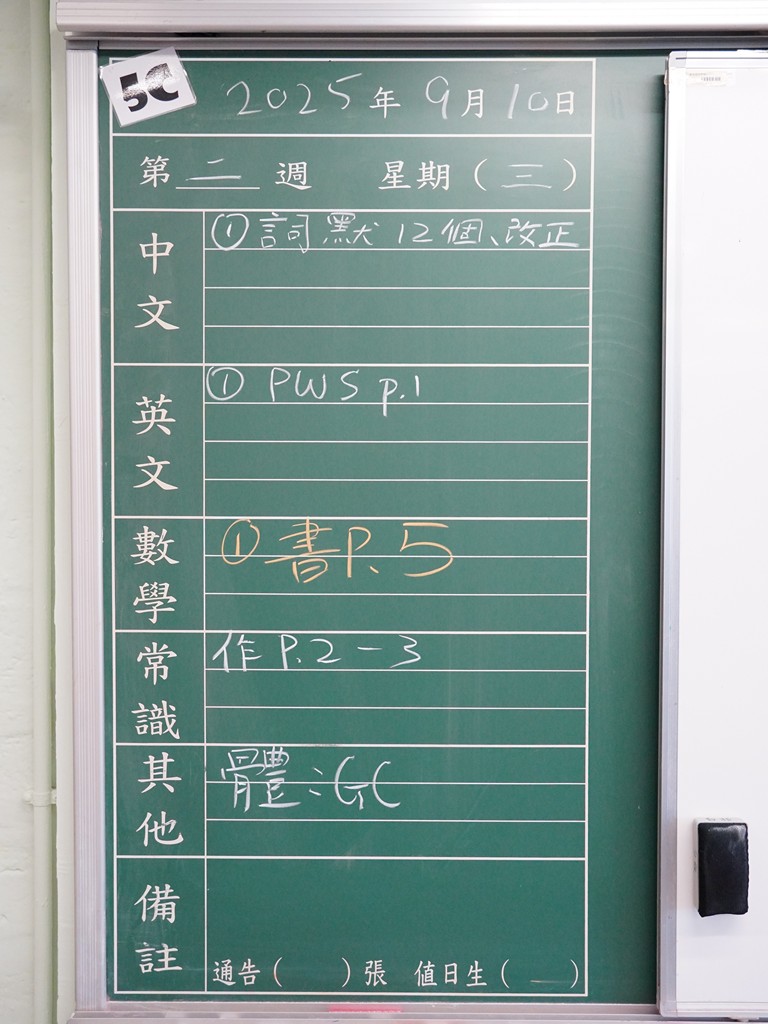 5C
2025年9月10日
第二週 星期(三)
中文
① 詞默 12個、改正
英文
① PWS p.1
數學
① 書P.5
常識
作P.2-3
其他
體:GC
備註
通告( )張 值日生( )